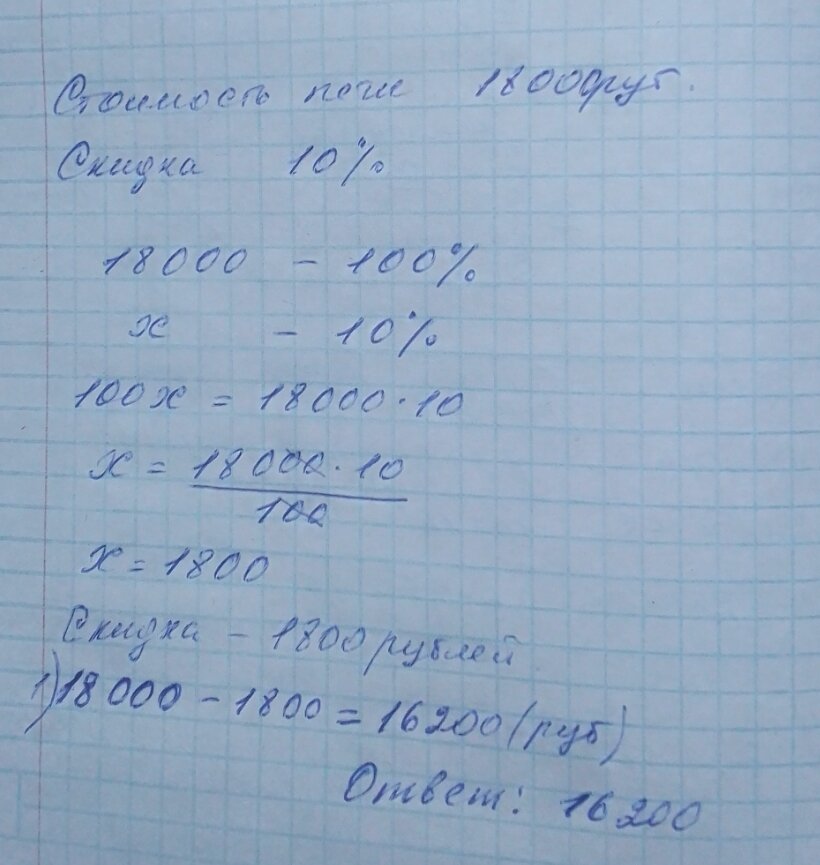 Стоимость печи 18000руб.
Скидка 10%
18000 - 100%
x - 10%
100x = 18000·10
x = 18000·10
100
x = 1800
Скидка - 1800 рублей
1) 18000 - 1800 = 16200 (руб)
Ответ: 16200